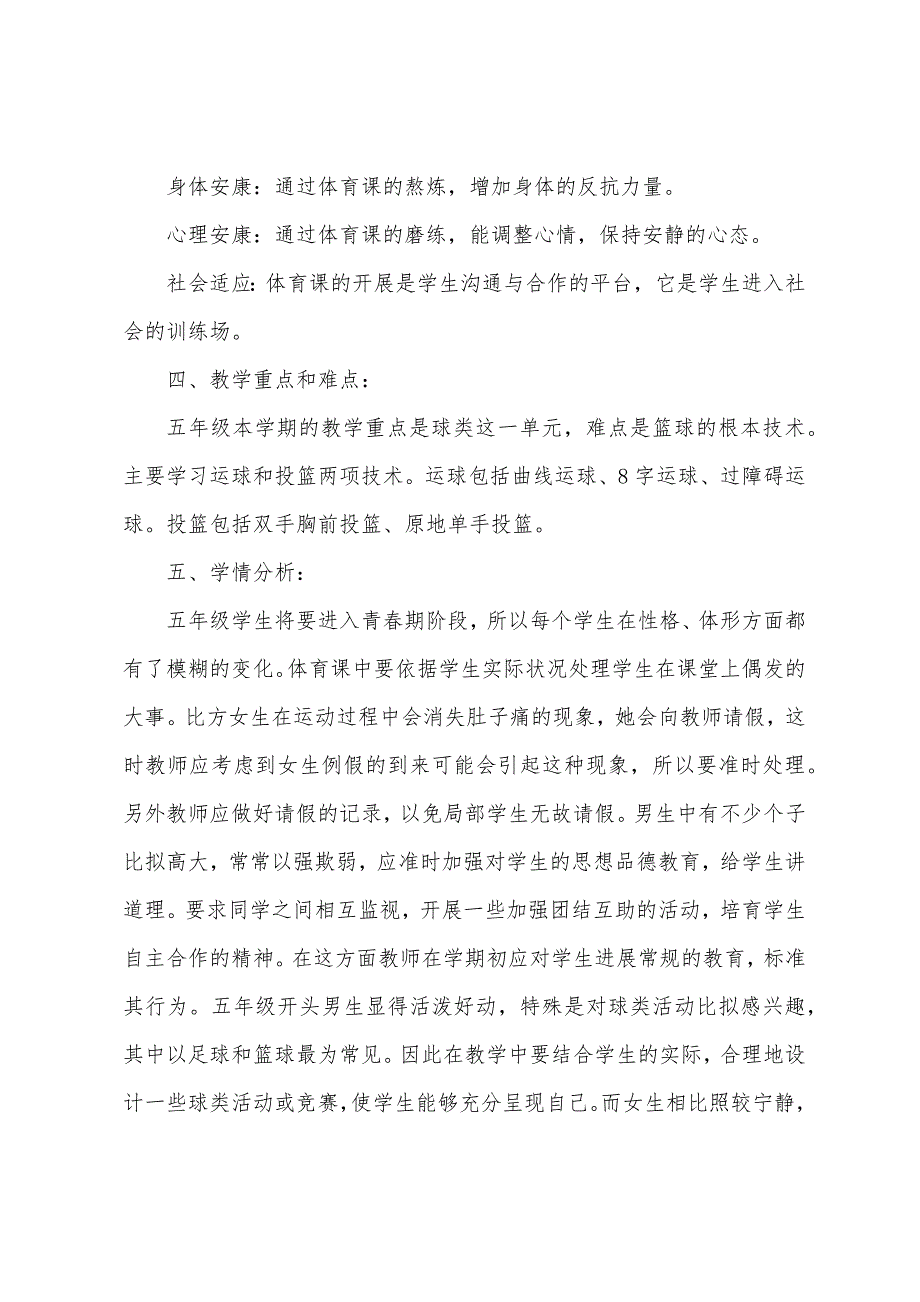 身体安康：通过体育课的熬炼，增加身体的反抗力量。
心理安康：通过体育课的磨练，能调整心情，保持安静的心态。
社会适应：体育课的开展是学生沟通与合作的平台，它是学生进入社
会的训练场。
四、教学重点和难点：
五年级本学期的教学重点是球类这一单元，难点是篮球的根本技术。
主要学习运球和投篮两项技术。运球包括曲线运球、8 字运球、过障碍运
球。投篮包括双手胸前投篮、原地单手投篮。
五、学情分析：
五年级学生将要进入青春期阶段，所以每个学生在性格、体形方面都
有了模糊的变化。体育课中要依据学生实际状况处理学生在课堂上偶发的
大事。比方女生在运动过程中会消失肚子痛的现象，她会向教师请假，这
时教师应考虑到女生例假的到来可能会引起这种现象，所以要准时处理。
另外教师应做好请假的记录，以免局部学生无故请假。男生中有不少个子
比拟高大，常常以强欺弱，应准时加强对学生的思想品德教育，给学生讲
道理。要求同学之间相互监视，开展一些加强团结互助的活动，培育学生
自主合作的精神。在这方面教师在学期初应对学生进展常规的教育，标准
其行为。五年级开头男生显得活泼好动，特殊是对球类活动比拟感兴趣，
其中以足球和篮球最为常见。因此在教学中要结合学生的实际，合理地设
计一些球类活动或竞赛，使学生能够充分呈现自己。而女生相比照较宁静，